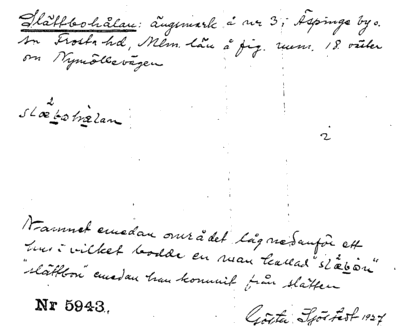 Slättbohålan: ängsmark å nr 3 i Äspinge by o.
sn Frosta hd, Mlm. län å fig. num. 18 väster
om Nymöllevägen
2
slæbohålan
i
Namnet emedan området låg nedanför ett
hus i vilket bodde en man kallad "slǽbon"
"slättbon" emedan han kommit från slätten
Nr 5943.
Gösta Sjöstedt 1927